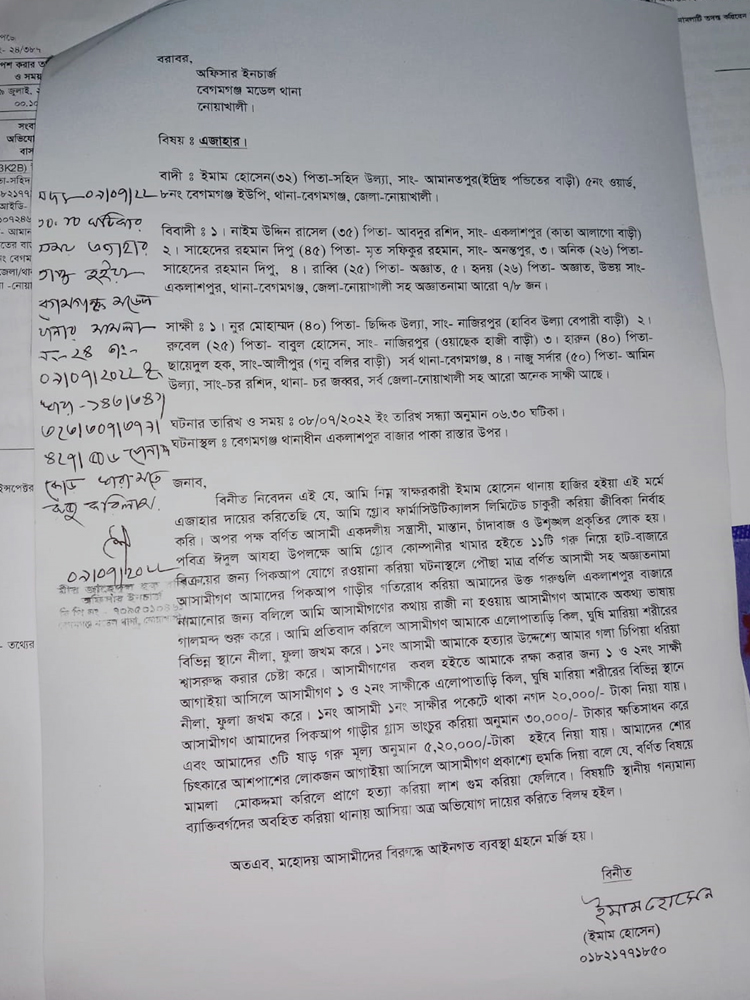 বরাবর,
অফিসার ইনচার্জ
বেগমগঞ্জ মডেল থানা
নোয়াখালী।
বিষয় ঃ এজাহার।
বাদী ঃ ইমাম হোসেন(৩২) পিতা-সহিদ উল্যা, সাং- আমানতপুর(ইদ্রিছ পন্ডিতের বাড়ী) ৫নং ওয়ার্ড,
৮নং বেগমগঞ্জ ইউপি, থানা-বেগমগঞ্জ, জেলা-নোয়াখালী।
বিবাদী ঃ ১। নাইম উদ্দিন রাসেল (৩৫) পিতা- আবদুর রশিদ, সাং- একলাশপুর (কাতা আলাগো বাড়ী)
২। সাহেদের রহমান দিপু (৪৫) পিতা- মৃত সফিকুর রহমান, সাং- অনন্তপুর, ৩। অনিক (২৬) পিতা-
সাহেদের রহমান দিপু, ৪। রাব্বি (২৫) পিতা- অজ্ঞাত, ৫। হৃদয় (২৬) পিতা- অজ্ঞাত, উভয় সাং-
একলাশপুর, থানা-বেগমগঞ্জ, জেলা-নোয়াখালী সহ অজ্ঞাতনামা আরো ৭/৮ জন।
সাক্ষী ঃ ১। নুর মোহাম্মদ (৪০) পিতা- ছিদ্দিক উল্যা, সাং- নাজিরপুর (হাবিব উল্যা বেপারী বাড়ী) ২।
রুবেল (২৫) পিতা- বাবুল হোসেন, সাং- নাজিরপুর (ওয়াছেক হাজী বাড়ী) ৩। হারুন (৪০) পিতা-
ছায়েদুল হক, সাং-আলীপুর (গনু বলির বাড়ী) সর্ব থানা-বেগমগঞ্জ, ৪। নাজু সর্দার (৫০) পিতা- আমিন
উল্যা, সাং-চর রশিদ, থানা- চর জব্বর, সর্ব জেলা-নোয়াখালী সহ আরো অনেক সাক্ষী আছে।
ঘটনার তারিখ ও সময় ঃ ০৮/০৭/২০২২ ইং তারিখ সন্ধ্যা অনুমান ০৬.৩০ ঘটিকা।
ঘটনাস্থল ঃ বেগমগঞ্জ থানাধীন একলাশপুর বাজার পাকা রাস্তার উপর।
জনাব,
বিনীত নিবেদন এই যে, আমি নিম্ন স্বাক্ষরকারী ইমাম হোসেন থানায় হাজির হইয়া এই মর্মে
এজাহার দায়ের করিতেছি যে, আমি গ্লোব ফার্মাসিউটিক্যালস লিমিটেড চাকুরী করিয়া জীবিকা নির্বাহ
করি। অপর পক্ষ বর্ণিত আসামী একদলীয় সন্ত্রাসী, মাস্তান, চাঁদাবাজ ও উশৃঙ্খল প্রকৃতির লোক হয়।
পবিত্র ঈদুল আযহা উপলক্ষে আমি গ্লোব কোম্পানীর খামার হইতে ১১টি গরু নিয়ে হাট-বাজারে
বিক্রয়ের জন্য পিকআপ যোগে রওয়ানা করিয়া ঘটনাস্থলে পৌছা মাত্র বর্ণিত আসামী সহ অজ্ঞাতনামা
আসামীগণ আমাদের পিকআপ গাড়ীর গতিরোধ করিয়া আমাদের উক্ত গরুগুলি একলাশপুর বাজারে
নামানোর জন্য বলিলে আমি আসামীগণের কথায় রাজী না হওয়ায় আসামীগণ আমাকে অকথ্য ভাষায়
গালমন্দ শুরু করে। আমি প্রতিবাদ করিলে আসামীগণ আমাকে এলোপাতাড়ি কিল, ঘুষি মারিয়া শরীরের
বিভিন্ন স্থানে নীলা, ফুলা জখম করে। ১নং আসামী আমাকে হত্যার উদ্দেশ্যে আমার গলা চিপিয়া ধরিয়া
শ্বাসরুদ্ধ করার চেষ্টা করে। আসামীগণের কবল হইতে আমাকে রক্ষা করার জন্য ১ ও ২নং সাক্ষী
আগাইয়া আসিলে আসামীগণ ১ ও ২নং সাক্ষীকে এলোপাতাড়ি কিল, ঘুষি মারিয়া শরীরের বিভিন্ন স্থানে
নীলা, ফুলা জখম করে। ১নং আসামী ১নং সাক্ষীর পকেটে থাকা নগদ ২০,০০০/- টাকা নিয়া যায়।
আসামীগণ আমাদের পিকআপ গাড়ীর গ্লাস ভাংচুর করিয়া অনুমান ৩০,০০০/- টাকার ক্ষতিসাধন করে
এবং আমাদের ৩টি ষাড় গরু মূল্য অনুমান ৫,২০,০০০/-টাকা হইবে নিয়া যায়। আমাদের শোর
চিৎকারে আশপাশের লোকজন আগাইয়া আসিলে আসামীগণ প্রকাশ্যে হুমকি দিয়া বলে যে, বর্ণিত বিষয়ে
মামলা মোকদ্দমা করিলে প্রাণে হত্যা করিয়া লাশ গুম করিয়া ফেলিবে। বিষয়টি স্থানীয় গন্যমান্য
ব্যাক্তিবর্গদের অবহিত করিয়া থানায় আসিয়া অত্র অভিযোগ দায়ের করিতে বিলম্ব হইল।
অতএব, মহোদয় আসামীদের বিরুদ্ধে আইনগত ব্যবস্থা গ্রহনে মর্জি হয়।
বিনীত
ইমাম হোসেন
(ইমাম হোসেন)
০১৮২১৭৭১৮৫০
০৯/০৭/২২
বেগমগঞ্জ মডেল
থানার মামলা
০৯/০৭/২০২২
০৯/০৭/২০২২
অফিসার ইনচার্জ